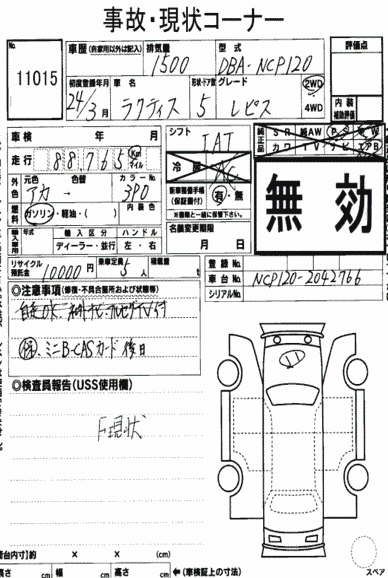 事故・現状コーナー
No.
11015
車歴 (自家用以外は記入)
排気量
1500
型式
DBA-NCP120
初度登録年月
24年3月
車名
ラクティス
形状・ドア数
5
グレード
レピス
2WD
4WD
評価点
内装
補助評価
車検 年 月
走行 88765 Km マイル
シフト
IAT
冷房
AC
純正品
SR 純AW PS PW
カワ TV ナビ エアB
無効
外色
元色
アカ
色替
→
カラーNo.
3P0
燃料
ガソリン・軽油・( )
内装色
新車整備手帳
(保証書付)
有・無
※書類と一緒に保管下さい。
輸入車用
年式
輸入区分
ハンドル
ディーラー・並行
左・右
名義変更期限
月 日
リサイクル
預託金
10000円
乗車定員
5人
積載量
登録No.
車台No.
NCP120-2042766
シリアルNo.
◎注意事項(修復・不具合箇所および状態等)
ミニB-CASカード後日
◎検査員報告(USS使用欄)
F現状
荷台内寸)約 × × (cm)
高さ cm 幅 cm 高さ cm ←(車検証上の寸法)
スペア